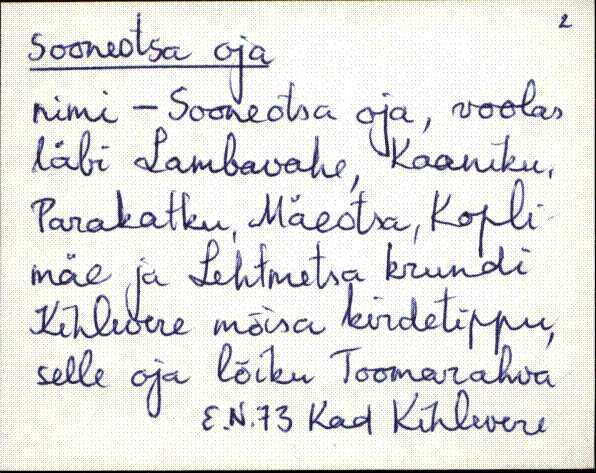 2
Sooneotsa oja
nimi – Sooneotsa oja, voolas
läbi Lambavahe, Kaaniku,
Parakatku, Mäeotsa, Kopli-
mäe ja Lehtmetsa krundi
Kihlevere mõisa kirdetippu,
selle oja lõiku Toomarahva
E.N.73 Kad Kihlevere